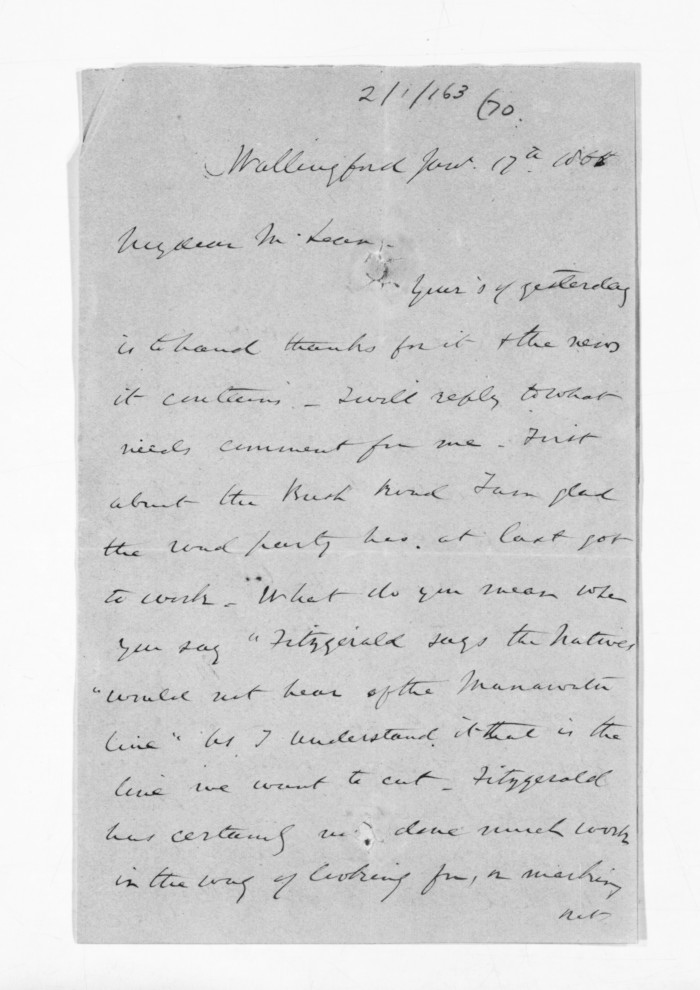 2/1/163 (70.
Wallingford Jany. 17th 1868
My dear McLean,-
Your's of yesterday
is to hand thanks for it & the news
it contains - I will reply to what
needs comment from me - First
about the Bush Road I am glad
the road party has. at last got
to work - What do you mean when
you say "Fitzgerald says the Natives
"would not hear of the Manawatu
line" as I understand it that is the
line we want to cut - Fitzgerald
has certainly done much work
in the way of looking for, or marking
out